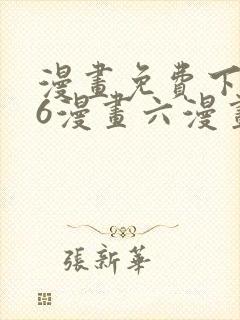 漫畫免費下
6漫畫六漫畫
張新華